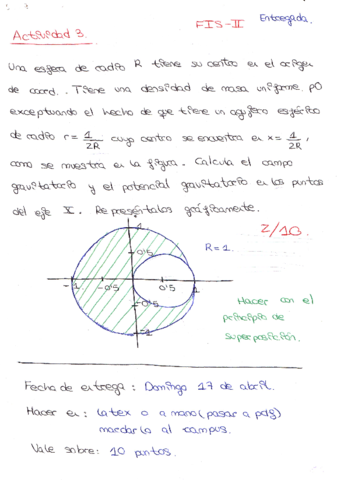 Entregada.
Actividad 3.
FIS-II
Una esfera de radio R tiene su centro en el origen
de coord.. Tiene una densidad de masa uniforme, ρ0
exceptuando el hecho de que tiene un agujero esférico
de radio r = 1/2R cuyo centro se encuentra en x = 1/2R,
como se muestra en la figura. Calcula el campo
gravitatorio y el potencial gravitatorio en los puntos
del eje X. Represéntalos gráficamente.
2/10
R=1.
1
0.5
-1
-0.5
0.5
1
-0.5
-1
Hacer con el
principio de
superposición.
Fecha de entrega: Domingo 17 de abril.
Hacer en: latex o a mano (pasar a pdf)
mandarlo al campus.
Vale sobre: 10 puntos.